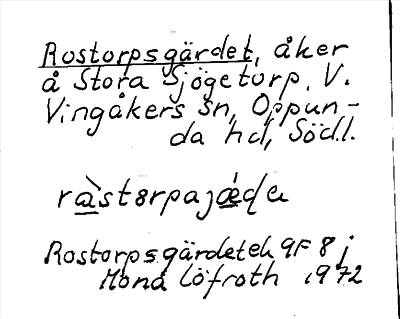 Rostorpsgärdet, åker
å Stora Sjögetorp, V.
Vingåkers sn, Oppun-
da hd, Södl.
Rostorpsgärdet ek 9F 8 j
Mona Löfroth 1972